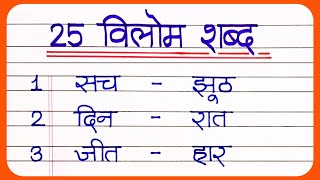 25 विलोम शब्द
1 सच - झूठ
2 दिन - रात
3 जीत - हार